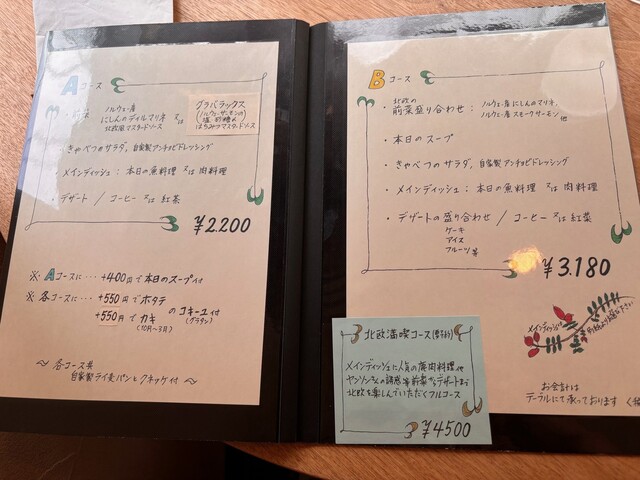 Aコース
・前菜 ノルウェー産
にしんのディルマリネ 又は
北欧風マスタードソース
グラバラックス
(ノルウェーサーモンの
塩、砂糖〆)
はちみつマスタードソース
・きゃべつのサラダ, 自家製アンチョビドレッシング
・メインディッシュ : 本日の魚料理 又は 肉料理
・デザート / コーヒー 又は 紅茶
¥2.200
※ Aコースに… +400円で本日のスープ付
※ 各コースに… +550円でホタテ
+550円でカキ のコキーユ付
(10月〜3月) (グラタン)
〜 各コース共
自家製ライ麦パンとクネッケ付 〜
Bコース
・北欧の
前菜盛り合わせ : ノルウェー産にしんのマリネ,
ノルウェー産スモークサーモン
他
・本日のスープ
・きゃべつのサラダ, 自家製アンチョビドレッシング
・メインディッシュ : 本日の魚料理 又は 肉料理
・デザートの盛り合わせ / コーヒー 又は 紅茶
ケーキ
アイス
フルーツ等
¥3.180
メインディッシュは
お会計は
テーブルにて承っております
北欧満喫コース
メインディッシュに人気の鹿肉料理や
ヤンソンさんの誘惑等前菜からデザートまで
北欧を楽しんでいただくフルコース
¥4500